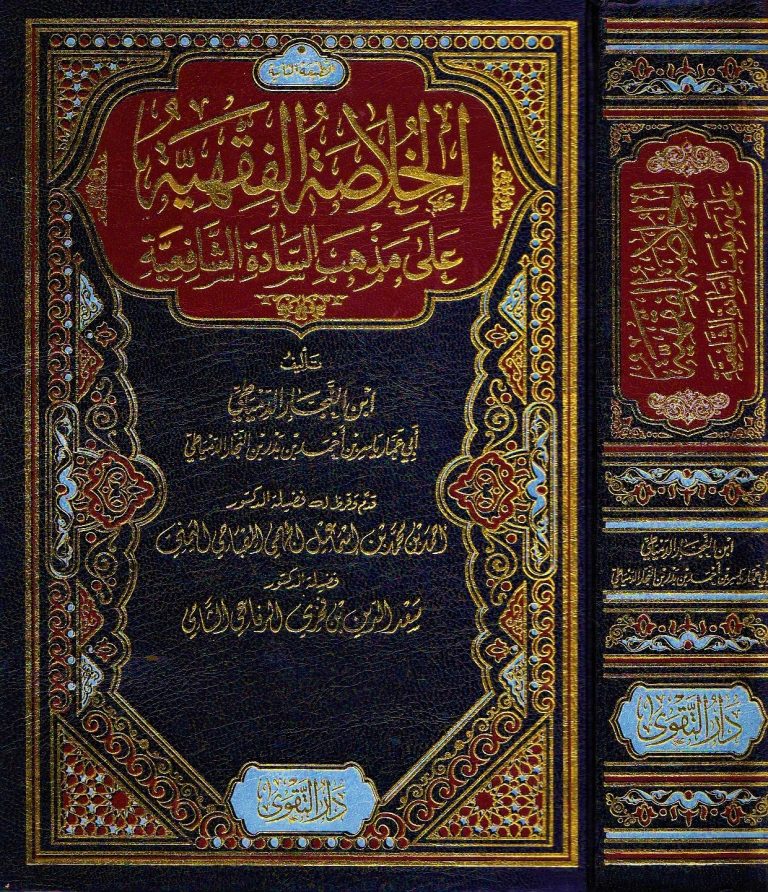 الطبعة الثانية
الخُلَاصَةُ الفِقْهِيَّةُ
عَلَى مَذْهَبِ السَّادَةِ الشَّافِعِيَّةِ
تَأليفُ
ابْنِ النَّجَّارِ الدِّمْيَاطِيِّ
أبي عمار ياسر بن أحمد بن بدر بن النجار الدمياطي
قدم وقرظ له فضيلة الدكتور
أحمد بن محمد بن إسماعيل
فضيلة الدكتور
سعد الدين بن فخري الرفاعي الشامي
دَارُ التَّقْوَى
الخُلَاصَةُ الفِقْهِيَّةُ
عَلَى مَذْهَبِ السَّادَةِ الشَّافِعِيَّةِ
ابن النجار الدمياطي
أبي عمار ياسر بن أحمد بن بدر بن النجار الدمياطي
دَارُ التَّقْوَى